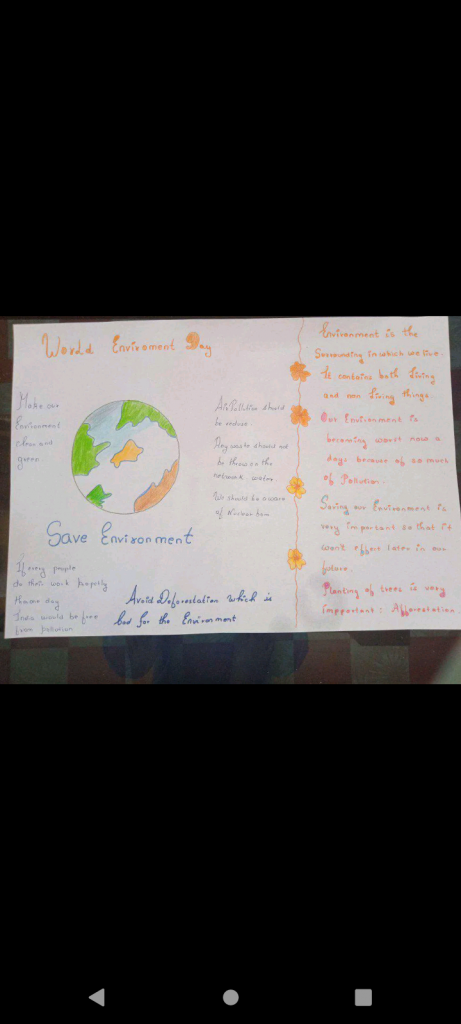 World Enviroment Day
Make our
Environment
clean and
green.
Air Pollution should
be reduce.
Any waste should not
be throw in the
water.
We should be aware
of
Save Environment
If every people
do their work
day
India would be free
from pollution
Avoid Deforestation which is
bad for the Environment
Environment is the
Sorrounding in which we live.
It contains both Living
and non Living things.
Our Environment is
becoming worst now a
days because of so much
of Pollution.
Saving our Environment is
very important so that it
won't effors later in our
future.
Planting of trees is very
Important: Afforestation